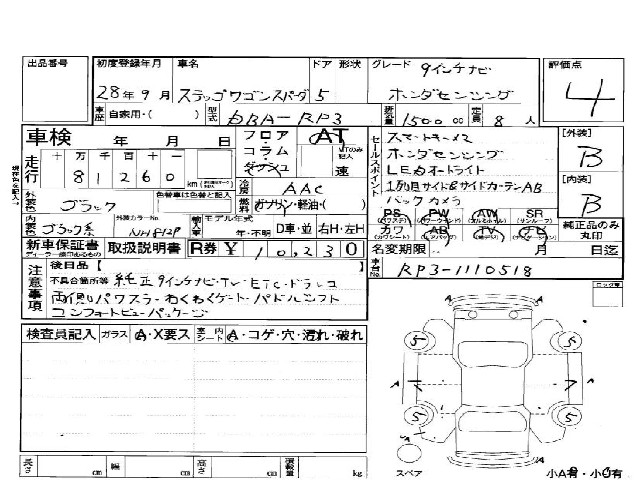 出品番号 初度登録年月 車名 ドア 形状 グレード 9インチナビ 評価点
28年9月 ステップワゴンスパーダ 5 ホンダセンシング 4
車歴 自家用・( ) 型式 DBA-RP3 排気量 1500 cc 定員 8 人
車検 年 月 日 フロア AT セールスポイント スマートキー×2 [外装]
走行 十 万 千 百 十 一 コラム ホンダセンシング B
81260 km ダッシュ 速 LEDオートライト [内装]
外装色 ブラック 色替車は色替と記入 冷房 AAC 1列目サイド&サイドカーテンAB B
燃料 ガソリン・軽油・( ) バックカメラ
内装色 ブラック系 外装カラーNo. 輸入車 モデル年式 PS PW AW SR 純正品のみ丸印
年・不明 D車・並 右H・左H カワ AB TV
新車保証書 取扱説明書 R券 ¥ 10,230 名変期限 月 日迄
車台No. RP3-1110518
注意事項 後日品[
不具合箇所等 純正9インチナビ・TV・ETC・ドラレコ
両側パワスラ・わくわくゲート・パドルシフト
コンフォートビューパッケージ
検査員記入 ガラス A・X要ス 室内シート A・コゲ・穴・汚れ・破れ
5 5
A A
5 5
A
スペア 小A有・小U有
長さ cm 幅 cm 高さ cm 積載量 kg